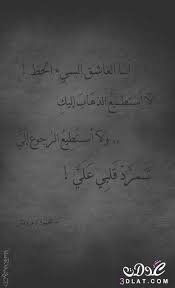 أنا العاشق السيء الحظ !
لا أستطيع الذهاب إليك
.. ولا أستطيع الرجوع إليّ
تمرد قلبي عليّ !
3DLAT.COM